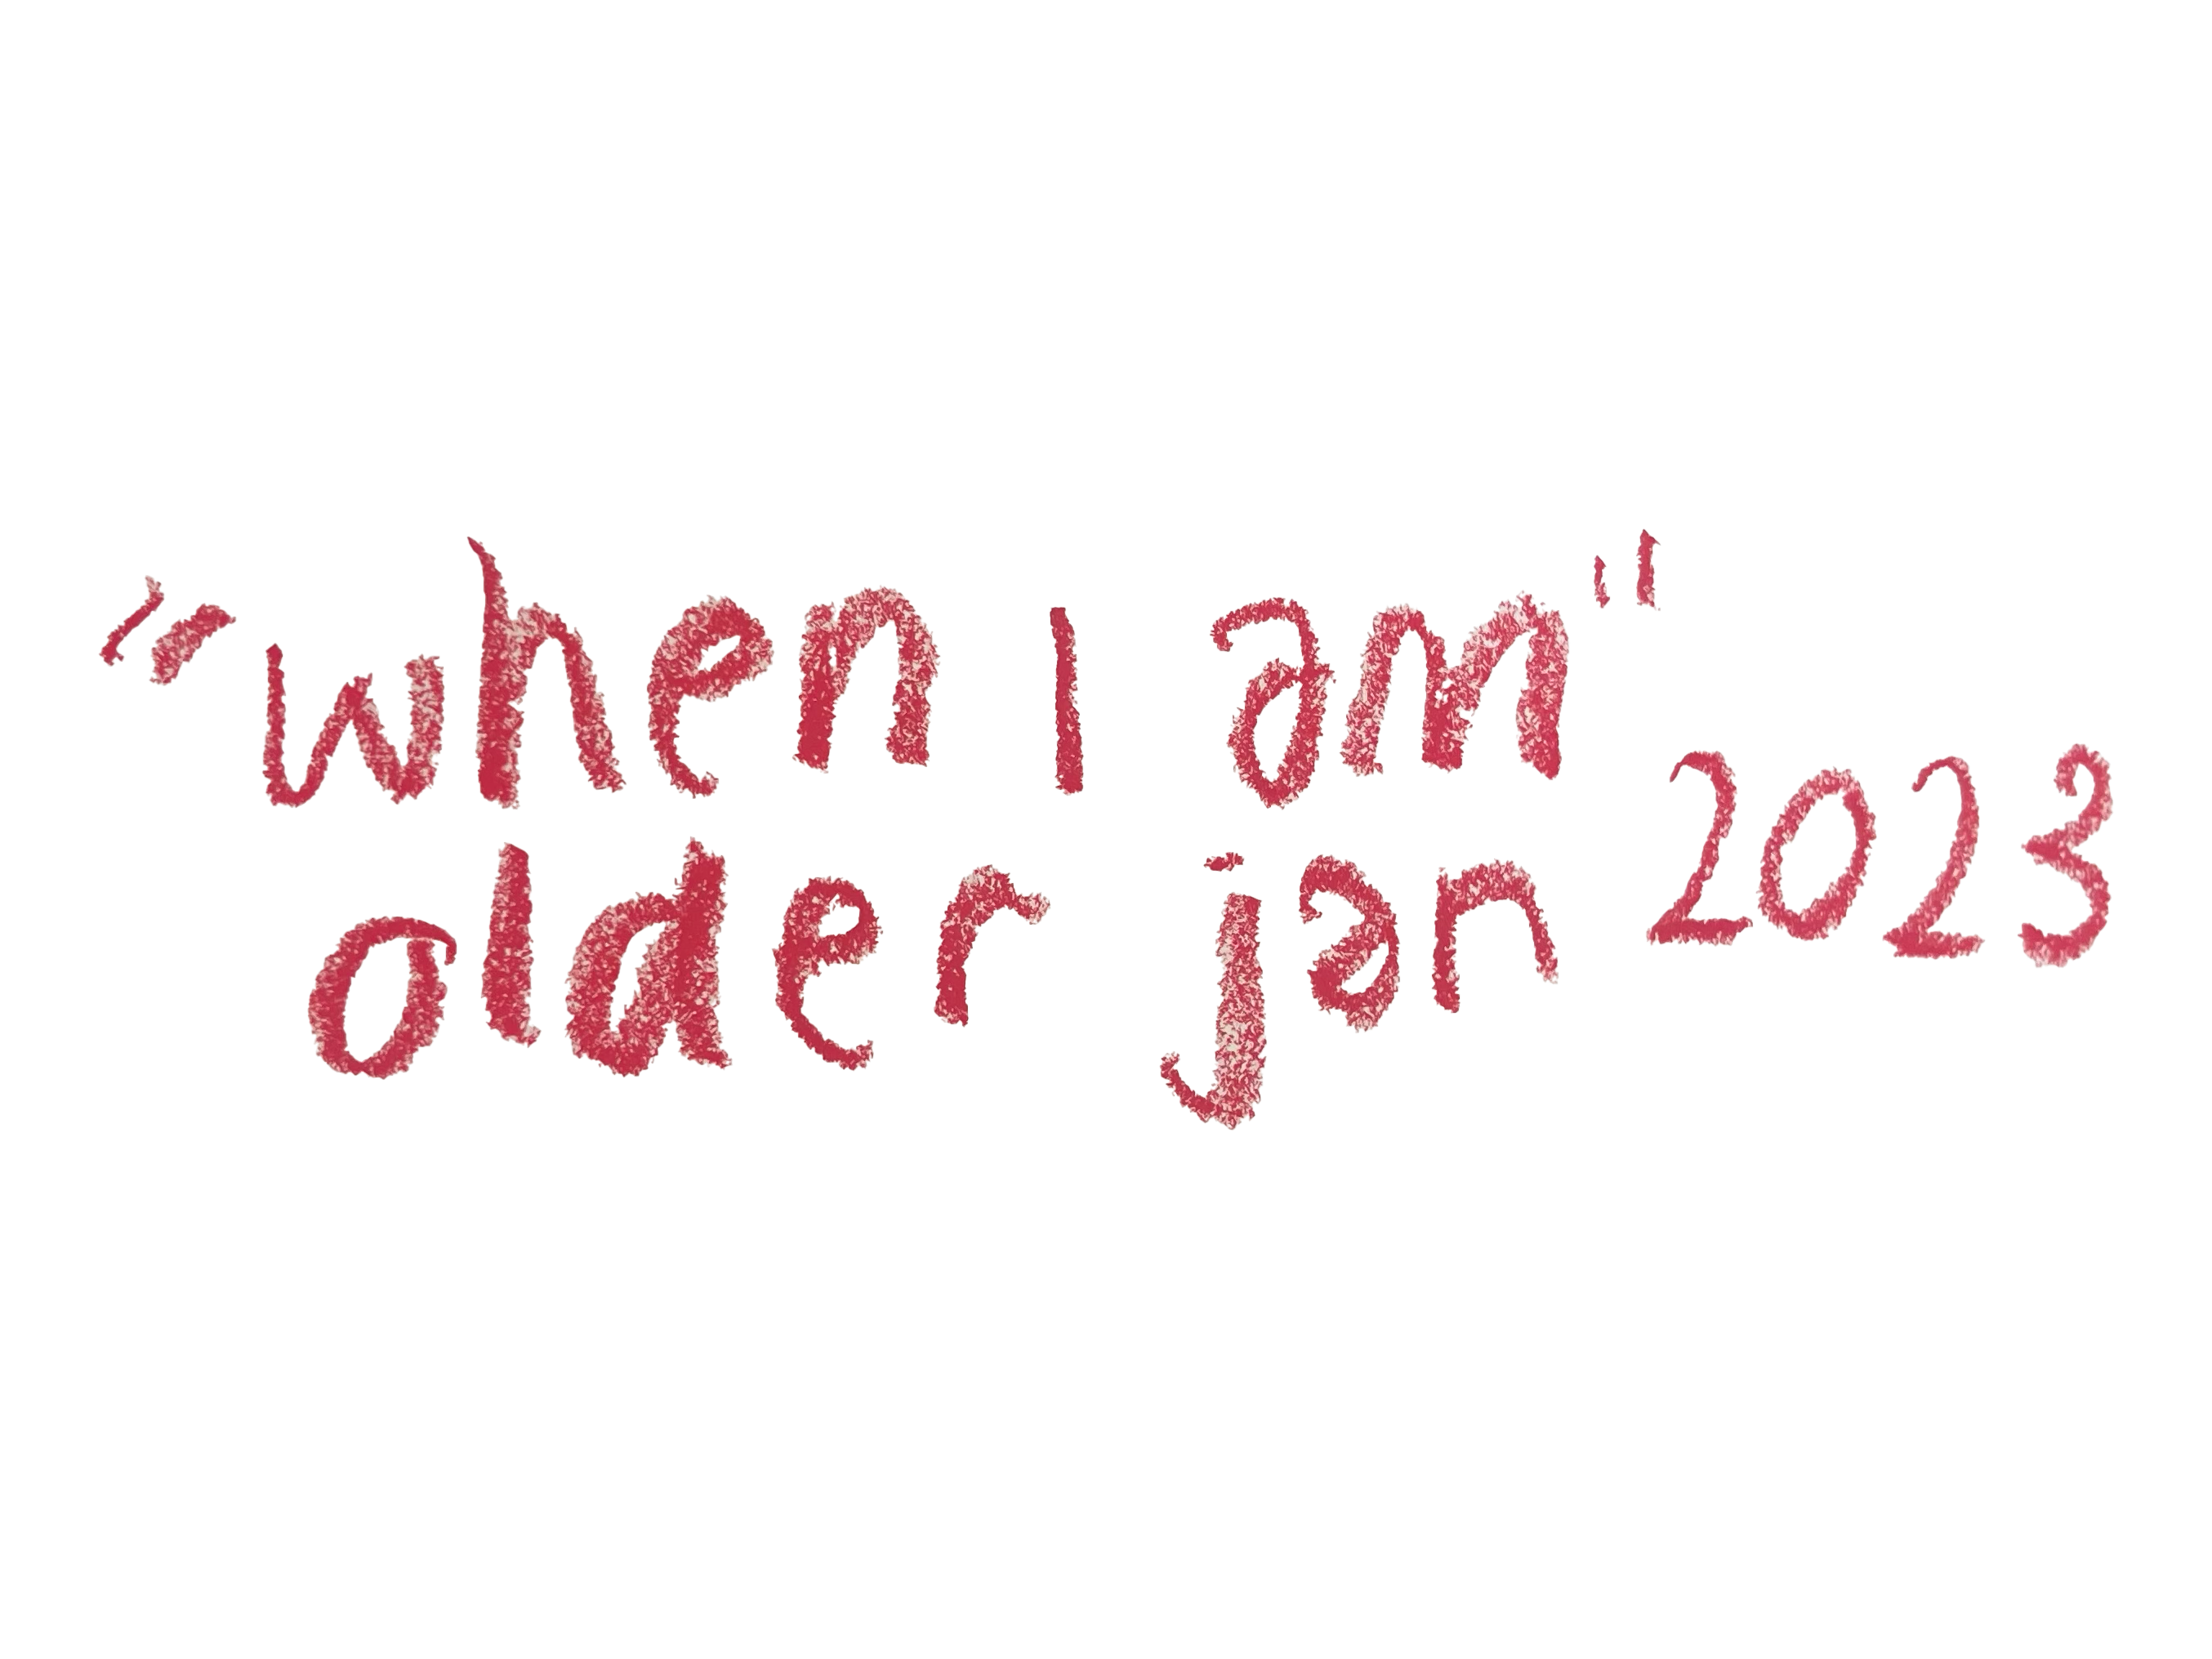 "when I am"
older jan 2023